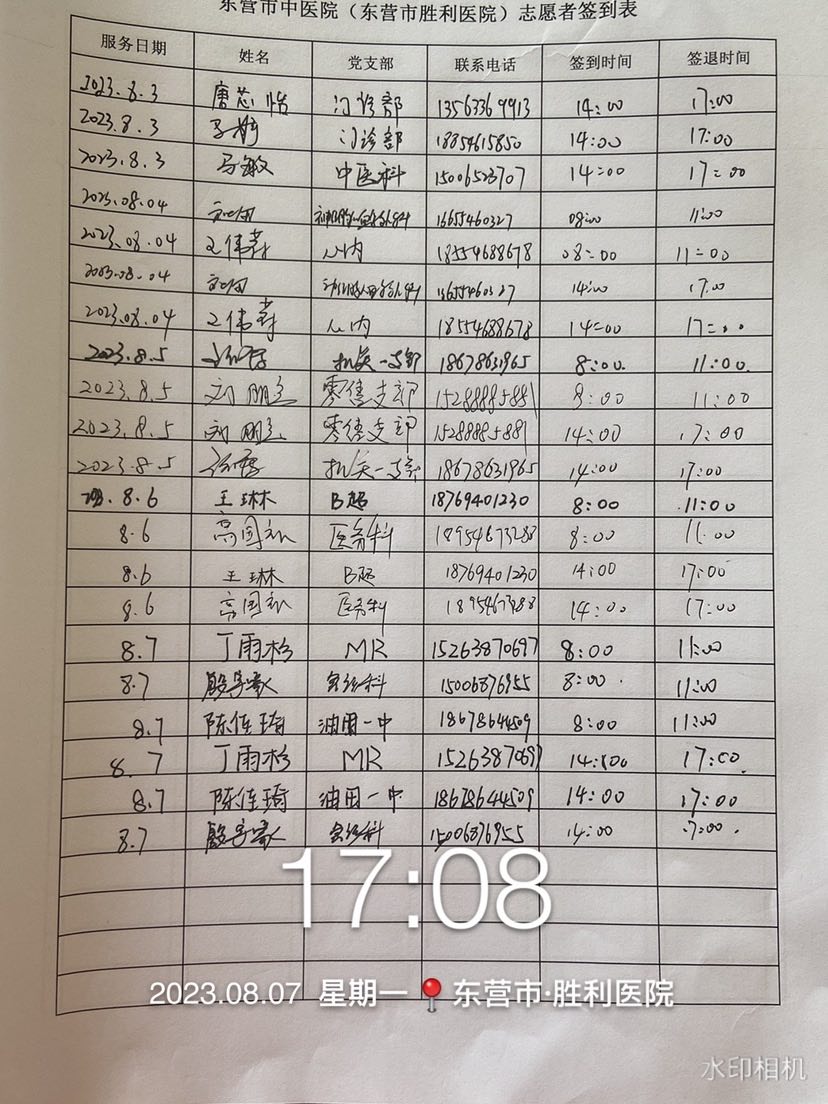 东营市中医院（东营市胜利医院）志愿者签到表
服务日期 姓名 党支部 联系电话 签到时间 签退时间
2023.8.3 唐芯怡 门诊部 13563369913 14:00 17:00
2023.8.3 门诊部 18854615850 14:00 17:00
2023.8.3 马敏 中医科 15006523707 14:00 17:00
2023.08.04 08:00 11:00
2023.08.04 王伟 心内 18554688678 08:00 11:00
2023.08.04 14:00 17:00
2023.08.04 王伟 心内 18554688678 14:00 17:00
2023.8.5 机关一支部 18678631965 8:00 11:00
2023.8.5 刘 零售支部 15288885881 8:00 11:00
2023.8.5 刘 零售支部 15288885881 14:00 17:00
2023.8.5 机关一支部 18678631965 14:00 17:00
8.6 王琳林 B超 18769401230 8:00 11:00
8.6 高国 医务科 18954673288 8:00 11:00
8.6 王琳林 B超 18769401230 14:00 17:00
8.6 高国 医务科 14:00 17:00
8.7 丁雨杉 MR 15263870697 8:00 11:00
8.7 15006876955 8:00 11:00
8.7 陈佳琦 油田一中 18678644509 8:00 11:00
8.7 丁雨杉 MR 15263870697 14:00 17:00
8.7 陈佳琦 油田一中 18678644509 14:00 17:00
8.7 15006876955 14:00 17:00
17:08
2023.08.07 星期一 东营市·胜利医院
水印相机